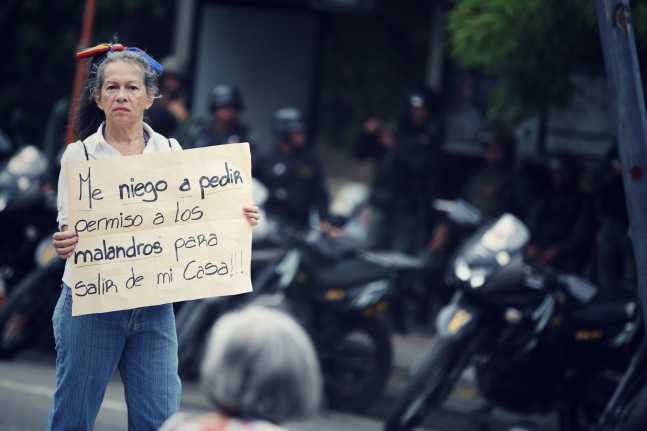 Me niego a pedir
permiso a los
malandros para
salir de mi Casa!!!